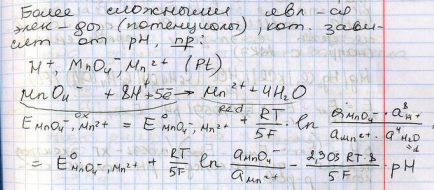 Более сложными явл-ся
элек-ды (потенциалы), кот. зави-
сят от pH, пр:
H⁺, MnO₄⁻, Mn²⁺ (Pt)
MnO₄⁻ + 8H⁺ + 5ē → Mn²⁺ + 4H₂O
ox red
E MnO₄⁻, Mn²⁺ = E⁰ MnO₄⁻, Mn²⁺ + RT/5F · ln (a MnO₄⁻ · a⁸ H⁺)/(a Mn²⁺ · a⁴ H₂O) =1
= E⁰ MnO₄⁻, Mn²⁺ + RT/5F ln (a MnO₄⁻)/(a Mn²⁺) − 2,303 RT·8/5F · pH